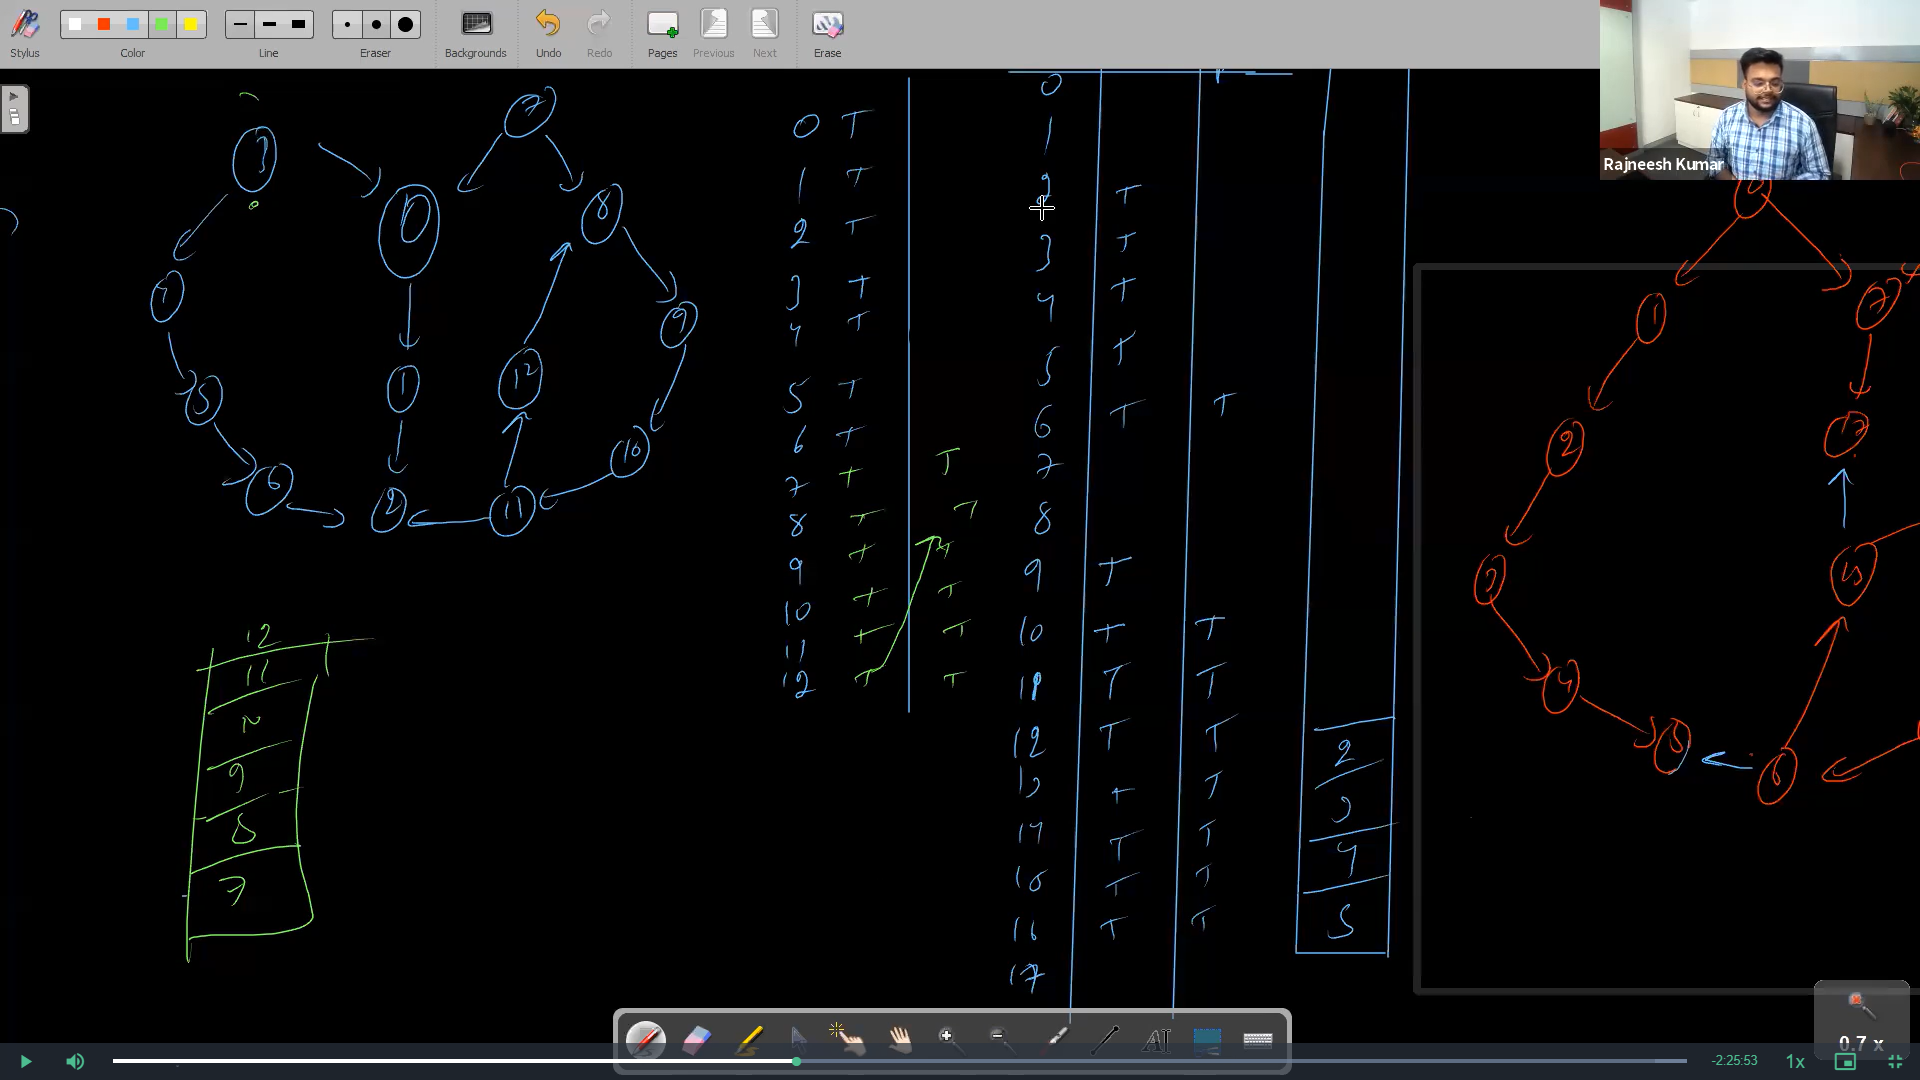 Stylus
Color
Line
Eraser
Backgrounds
Undo
Redo
Pages
Previous
Next
Erase
Rajneesh Kumar
3
7
8
9
5
1
12
6
2
11
10
0 T
1 T
2 T
3 T
4 T
5 T
6 T
7 T T
8 T T
9 T T
10 T T
11 T T
12 T T
12
11
9
8
7
0
1
2 T
3 T
4 T
5 T
6 T T
7
8
9 T
10 T T
11 T T
12 T T
13 T T
14 T T
15 T T
16 T T
17
2
3
4
5
1
7
2
17
3
4
5
6
0.7 x
-2:25:53
1x